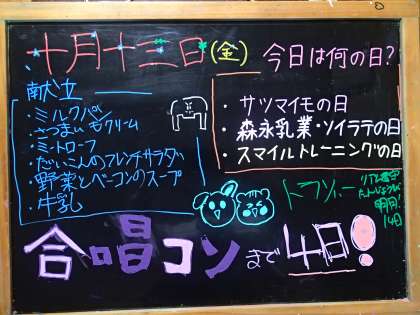 十月十三日(金)
今日は何の日?
献立
・ミルクパン
・さつまいもクリーム
・ミートローフ
・だいこんのフレンチサラダ
・野菜とベーコンのスープ
・牛乳
・サツマイモの日
・森永乳業・ソイラテの日
・スマイルトレーニングの日
リアル
明日!
14日
合唱コンまで4日!